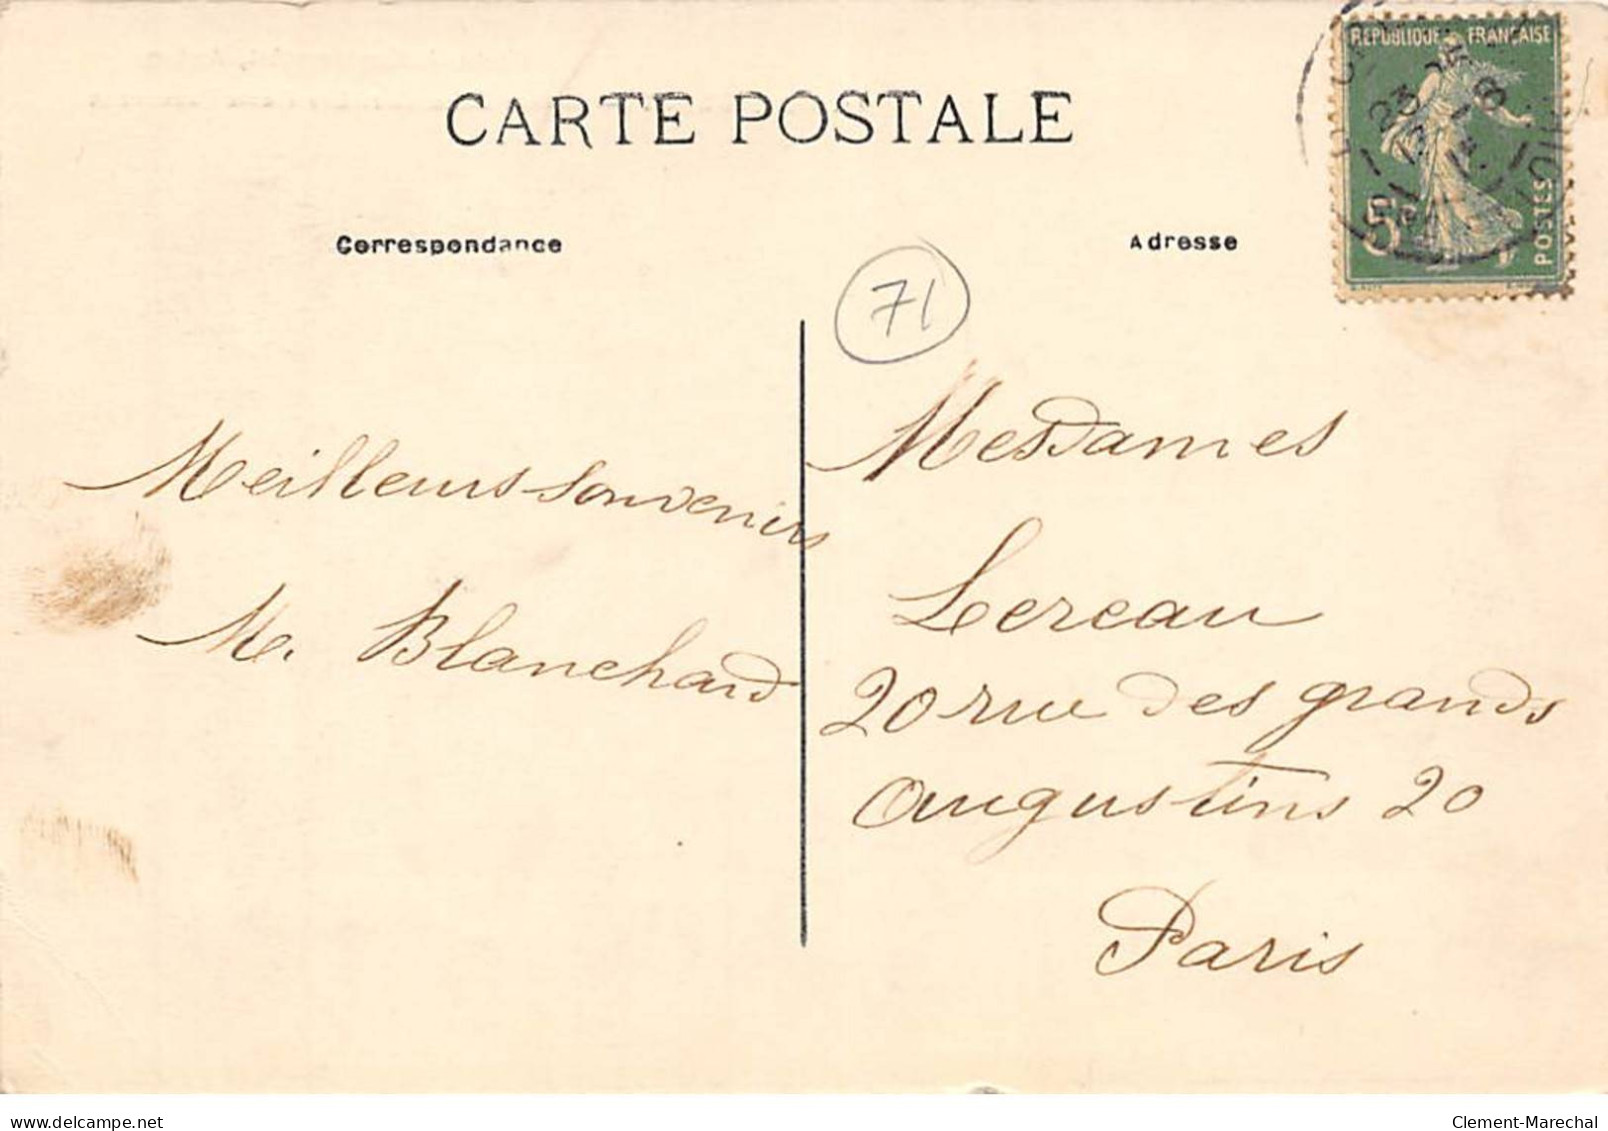 CARTE POSTALE
Correspondance
Adresse
RÉPUBLIQUE FRANÇAISE
5c
POSTES
71
Meilleurs souvenirs
M. Blanchard
Mesdames
Lereau
20 rue des grands
augustins 20
Paris
Clement-Marechal